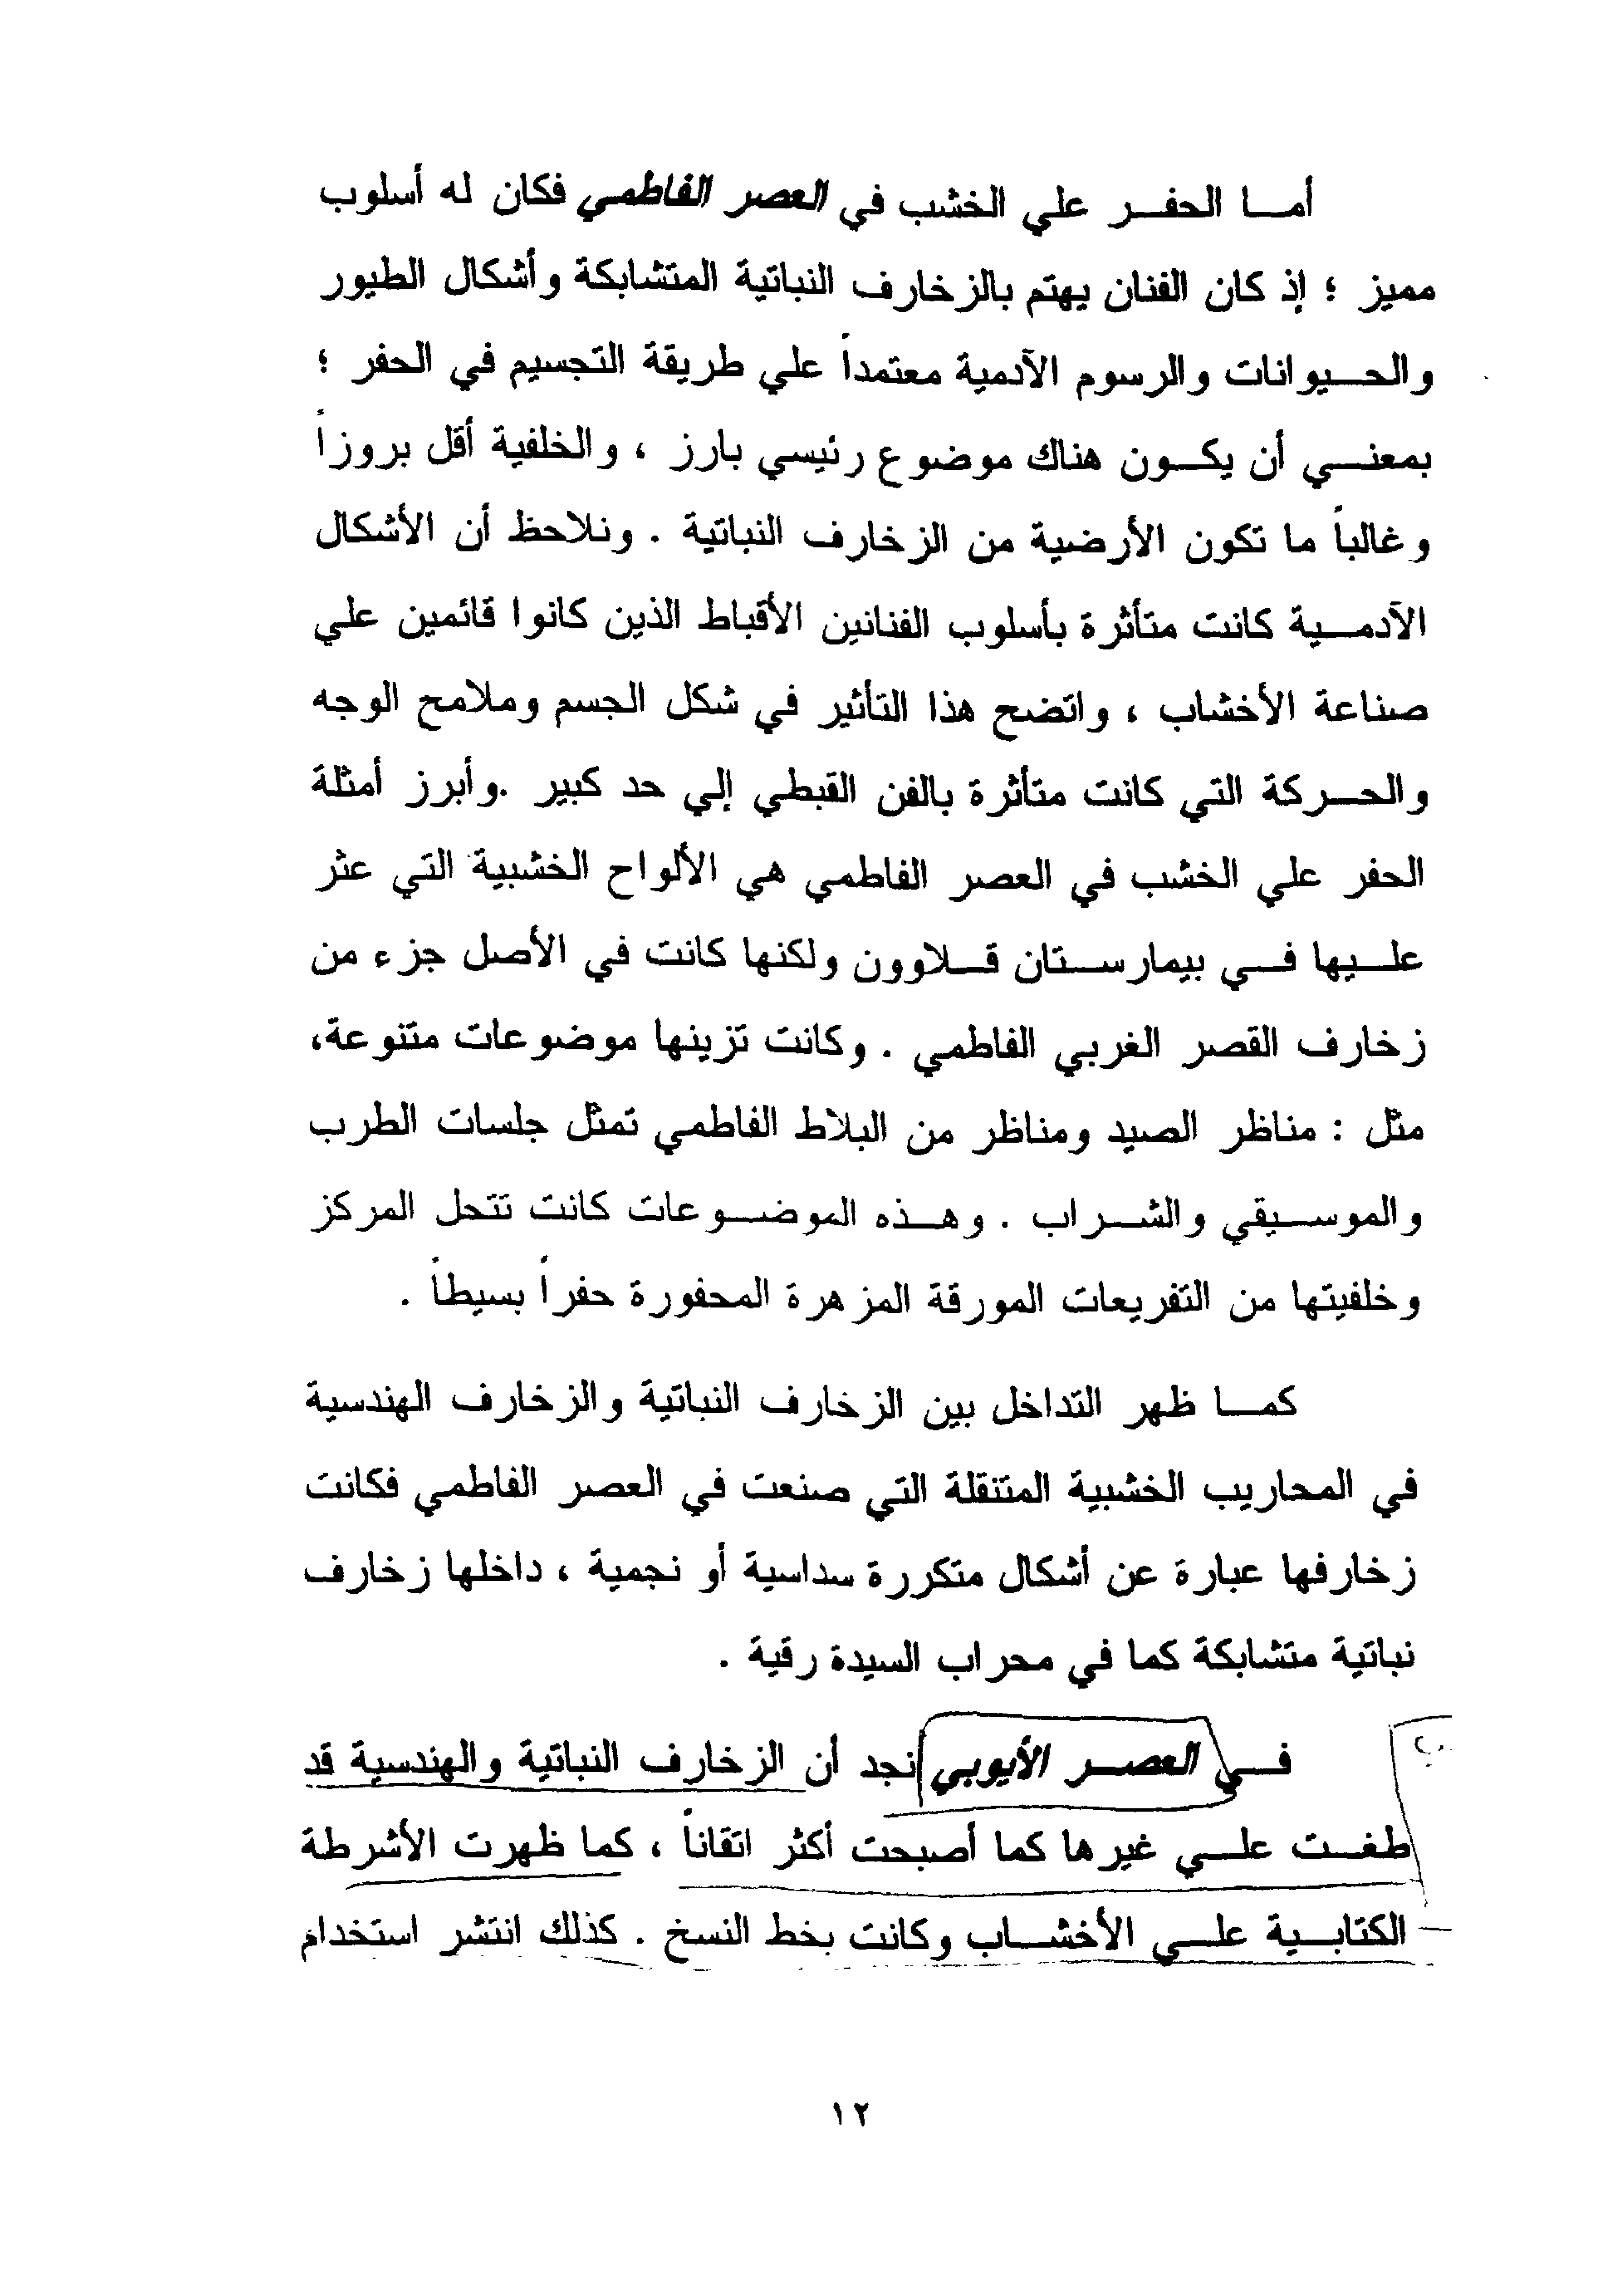 أما الحفر علي الخشب في العصر الفاطمي فكان له أسلوب
مميز ؛ إذ كان الفنان يهتم بالزخارف النباتية المتشابكة وأشكال الطيور
والحيوانات والرسوم الآدمية معتمداً علي طريقة التجسيم في الحفر ؛
بمعني أن يكون هناك موضوع رئيسي بارز ، والخلفية أقل بروزاً
وغالباً ما تكون الأرضية من الزخارف النباتية . ونلاحظ أن الأشكال
الآدمية كانت متأثرة بأسلوب الفنانين الأقباط الذين كانوا قائمين علي
صناعة الأخشاب ، واتضح هذا التأثير في شكل الجسم وملامح الوجه
والحركة التي كانت متأثرة بالفن القبطي إلي حد كبير .وأبرز أمثلة
الحفر علي الخشب في العصر الفاطمي هي الألواح الخشبية التي عثر
عليها في بيمارستان قلاوون ولكنها كانت في الأصل جزء من
زخارف القصر الغربي الفاطمي . وكانت تزينها موضوعات متنوعة،
مثل : مناظر الصيد ومناظر من البلاط الفاطمي تمثل جلسات الطرب
والموسيقي والشراب . وهذه الموضوعات كانت تتحل المركز
وخلفيتها من التفريعات المورقة المزهرة المحفورة حفراً بسيطاً .
كما ظهر التداخل بين الزخارف النباتية والزخارف الهندسية
في المحاريب الخشبية المتنقلة التي صنعت في العصر الفاطمي فكانت
زخارفها عبارة عن أشكال متكررة سداسية أو نجمية ، داخلها زخارف
نباتية متشابكة كما في محراب السيدة رقية .
في العصر الأيوبي نجد أن الزخارف النباتية والهندسية قد
طغت علي غيرها كما أصبحت أكثر اتقاناً ، كما ظهرت الأشرطة
الكتابية علي الأخشاب وكانت بخط النسخ . كذلك انتشر استخدام
١٢